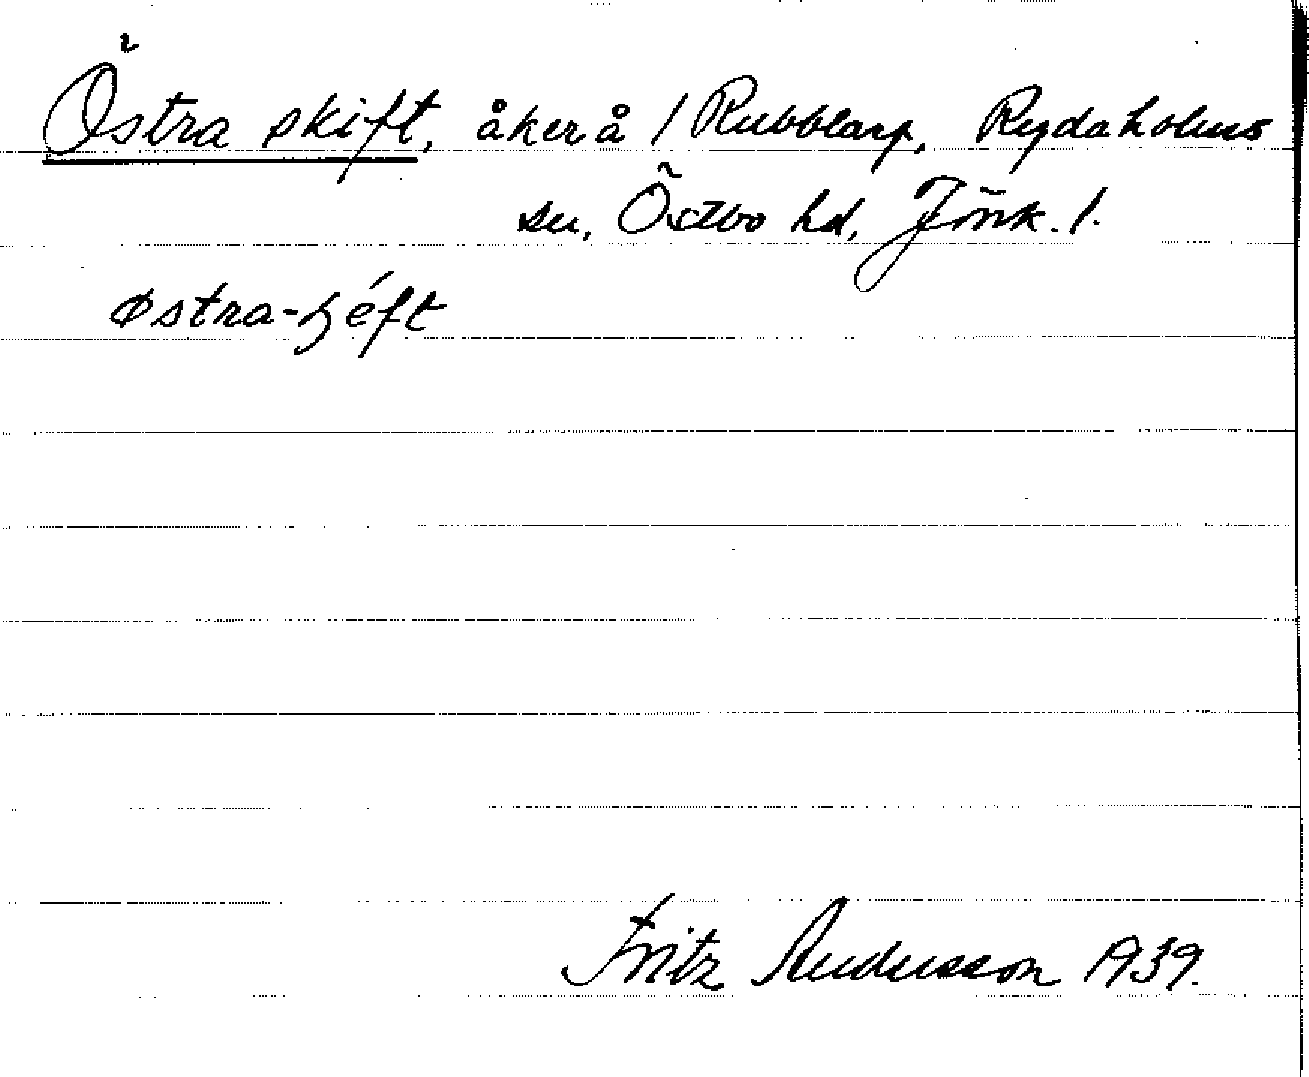 Östra skift, åker å / Rubblarp, Rydaholms
sn, Östbo hd, Jönk. l.
østra-ʒéft
Fritz Andersson 1939.